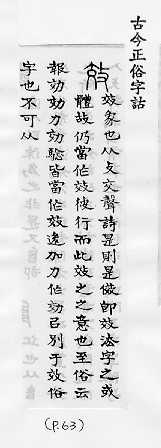 古今正俗字詁
效
效象也从攴交聲詩是則是傚即效法字之或
體故仍當作效彼行而此效之之意也至俗云
報効効力効驗皆當作效遂加力作効已別于效俗
字也不可从
(P.63)